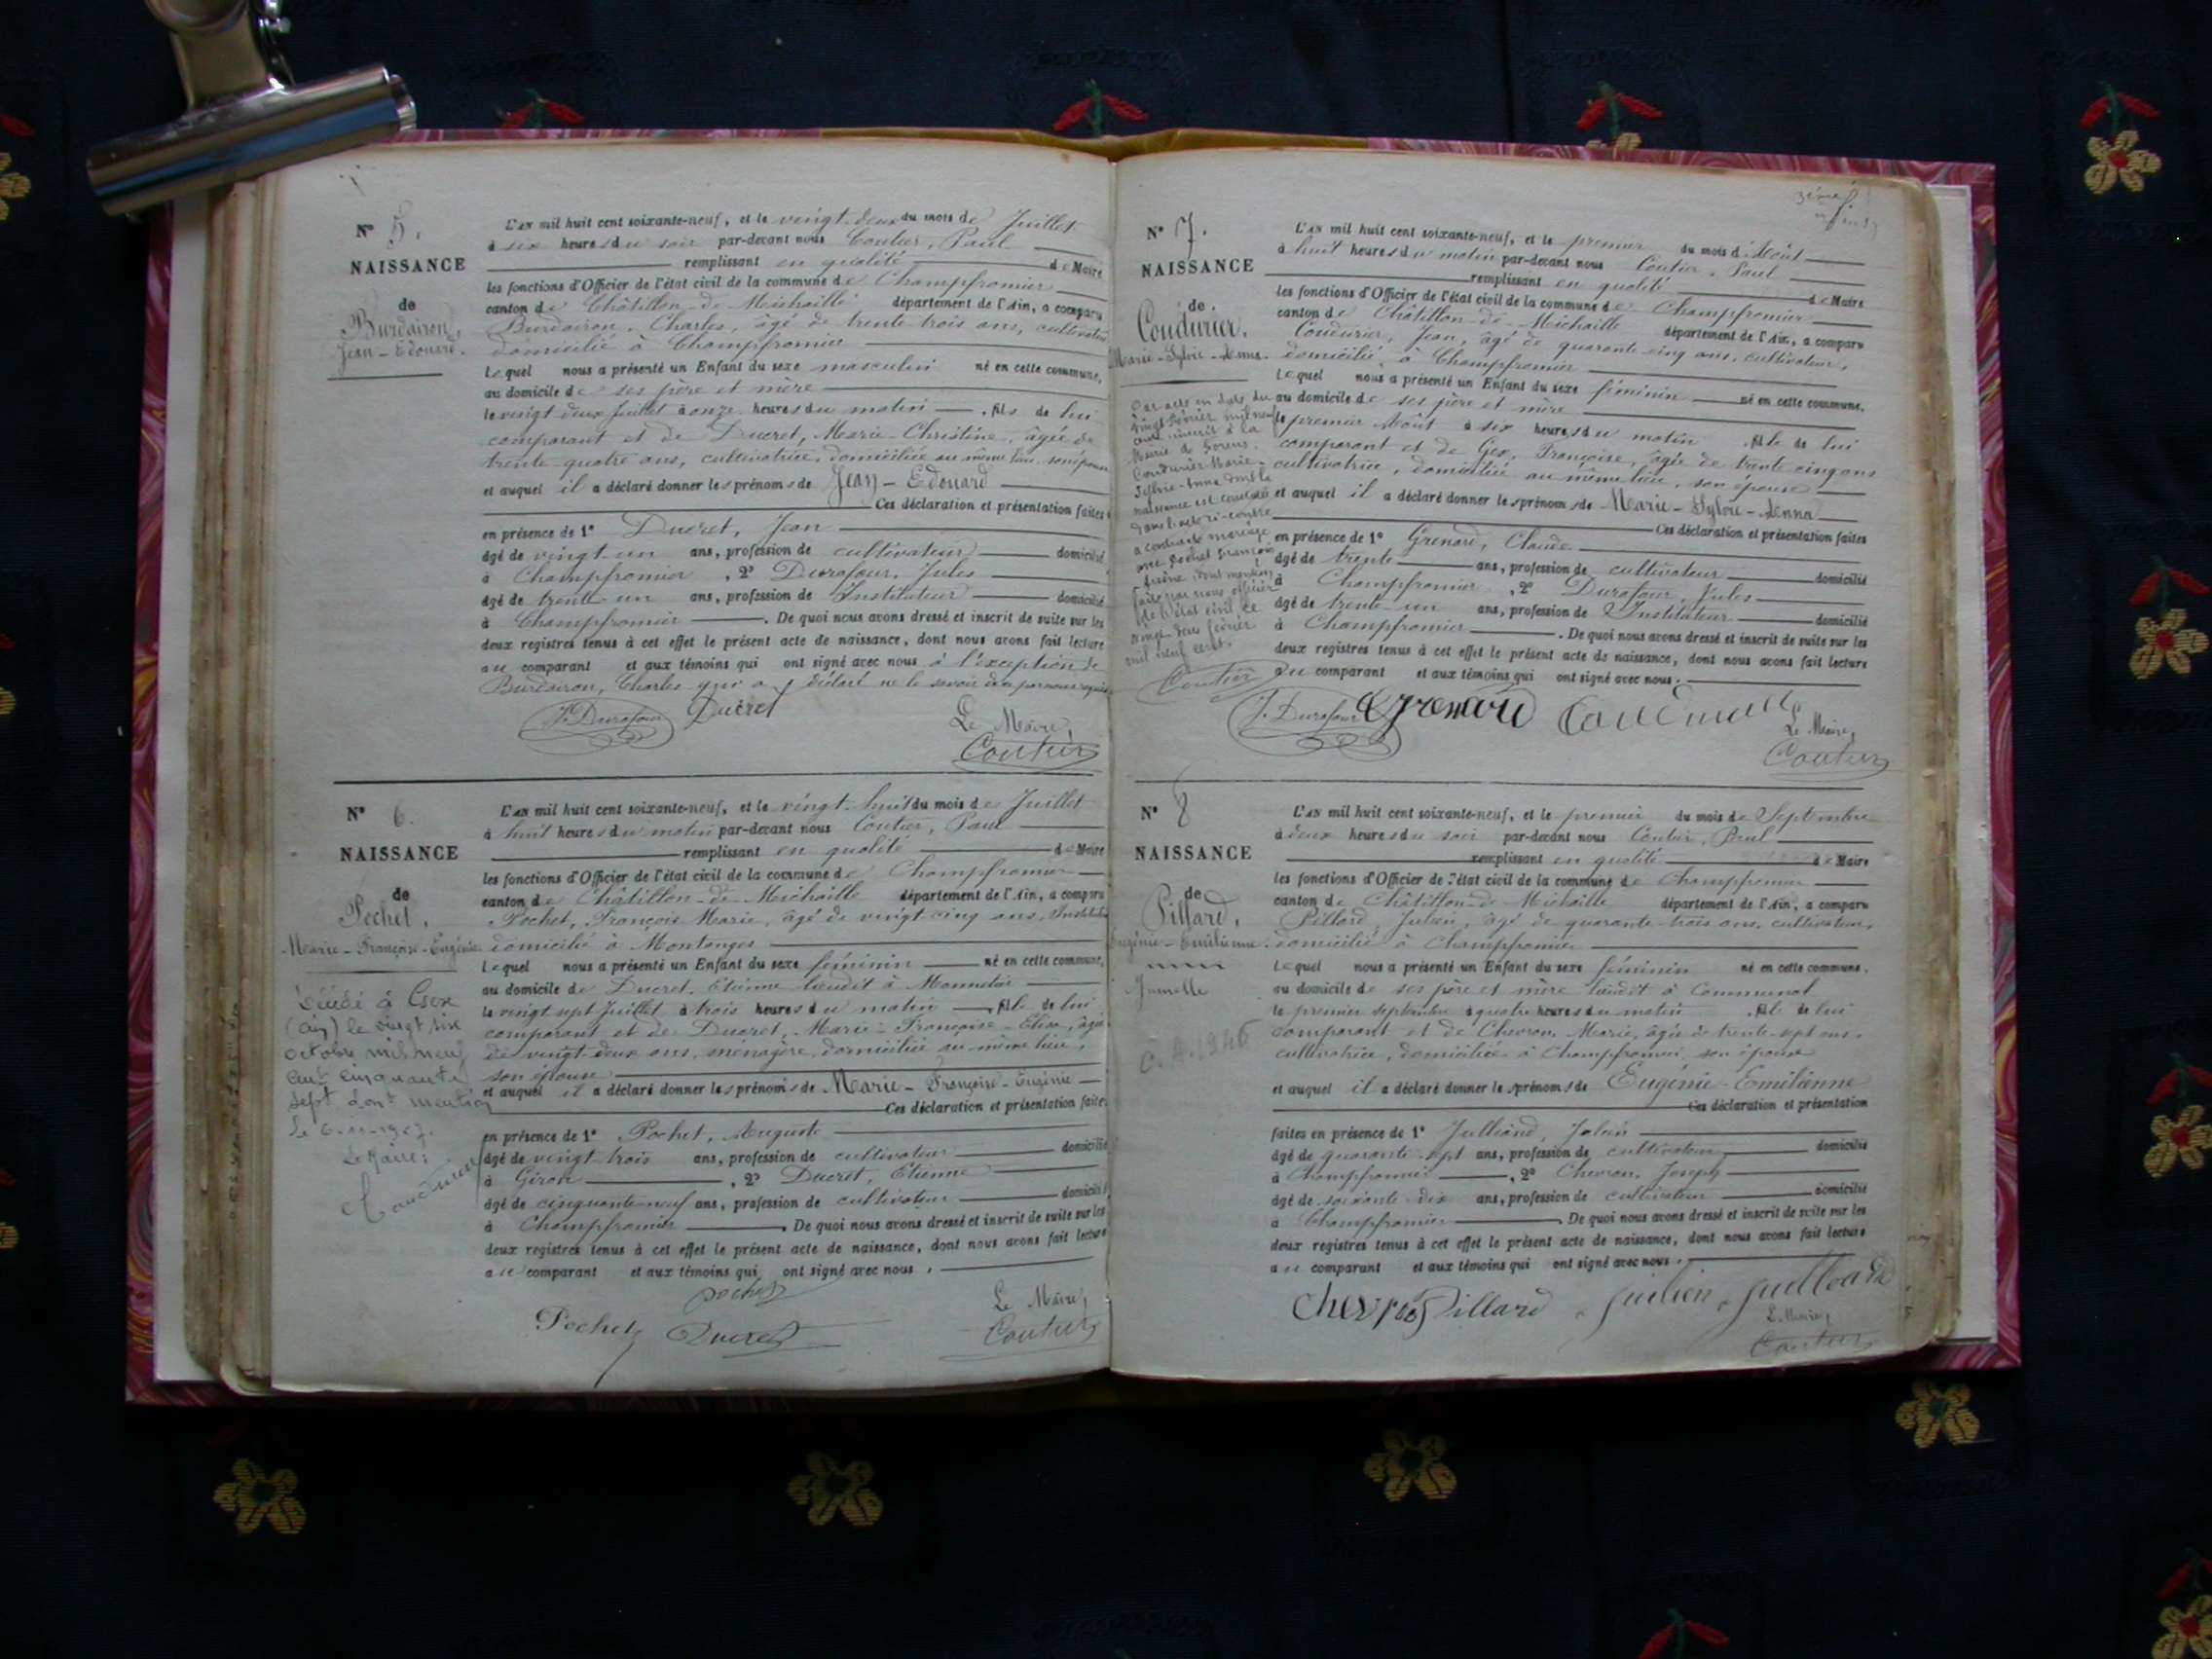 N° 5.
NAISSANCE
de
Burdairon,
Jean-Edouard.
L'AN mil huit cent soixante-neuf, et le vingt-deux du mois de Juillet
à six heures du soir par-devant nous Coutier, Paul
remplissant en qualité de Maire
les fonctions d'Officier de l'état civil de la commune de Champfromier
canton de Châtillon-de-Michaille département de l'Ain, a comparu
Burdairon, Charles, âgé de trente-trois ans, cultivateur
domicilié à Champfromier
Lequel nous a présenté un Enfant du sexe masculin né en cette commune,
au domicile de ses père et mère
le vingt deux Juillet à onze heures du matin, fils de lui
comparant et de Ducret, Marie-Christine, âgée de
trente-quatre ans, cultivatrice, domiciliée au même lieu, son épouse
et auquel il a déclaré donner les prénoms de Jean-Edouard
Ces déclaration et présentation faites
en présence de 1° Ducret, Jean
âgé de vingt-un ans, profession de cultivateur domicilié
à Champfromier, 2° Durafour, Jules
âgé de trente-un ans, profession de Instituteur domicilié
à Champfromier. De quoi nous avons dressé et inscrit de suite sur les
deux registres tenus à cet effet le présent acte de naissance, dont nous avons fait lecture
au comparant et aux témoins qui ont signé avec nous à l'exception de
Burdairon, Charles qui a déclaré ne le savoir
J. Durafour Ducret
Le Maire,
Coutier
N° 6.
NAISSANCE
de
Pochet,
Marie-Françoise-Eugénie
Décédé à Gex
(Ain) le vingt six
octobre mil neuf
cent cinquante
sept dont mention
Le Maire:
L'AN mil huit cent soixante-neuf, et le vingt-huit du mois de Juillet
à huit heures du matin par-devant nous Coutier, Paul
remplissant en qualité de Maire
les fonctions d'Officier de l'état civil de la commune de Champfromier
canton de Châtillon-de-Michaille département de l'Ain, a comparu
Pochet, François-Marie, âgé de vingt-cinq ans, Instituteur
domicilié à Montanges
Lequel nous a présenté un Enfant du sexe féminin né en cette commune,
au domicile de Ducret, Etienne lieudit à Monnetier
le vingt-sept Juillet à trois heures du matin, fille de lui
comparant et de Ducret, Marie-Françoise-Elise, âgée
de vingt-deux ans, ménagère, domiciliée au même lieu,
son épouse
et auquel il a déclaré donner les prénoms de Marie-Françoise-Eugénie
Ces déclaration et présentation faites
en présence de 1° Pochet, Auguste
âgé de vingt-trois ans, profession de cultivateur domicilié
à Giron, 2° Ducret, Etienne
âgé de cinquante-neuf ans, profession de cultivateur domicilié
à Champfromier. De quoi nous avons dressé et inscrit de suite sur les
deux registres tenus à cet effet le présent acte de naissance, dont nous avons fait lecture
au comparant et aux témoins qui ont signé avec nous.
Pochet
Pochet Ducret
Le Maire,
Coutier
N° 7.
NAISSANCE
de
Coudurier,
Marie-Sylvie-Anna.
Par acte en date du
vingt Février mil neuf
cent inscrit à la
Mairie de
Coudurier Marie-
Sylvie-Anna dont la
naissance est constatée
dans l'acte ci-contre
a contracté mariage
avec Pochet François
dont mention
faite par nous officier
de l'état civil le
vingt deux février
mil neuf cent.
Coutier
L'AN mil huit cent soixante-neuf, et le premier du mois d'Août
à huit heures du matin par-devant nous Coutier, Paul
remplissant en qualité de Maire
les fonctions d'Officier de l'état civil de la commune de Champfromier
canton de Châtillon-de-Michaille département de l'Ain, a comparu
Coudurier, Jean, âgé de quarante-cinq ans, cultivateur,
domicilié à Champfromier
Lequel nous a présenté un Enfant du sexe féminin né en cette commune,
au domicile de ses père et mère
le premier Août à six heures du matin, fille de lui
comparant et de Gex, Françoise, âgée de trente cinq ans
cultivatrice, domiciliée au même lieu, son épouse
et auquel il a déclaré donner les prénoms de Marie-Sylvie-Anna
Ces déclaration et présentation faites
en présence de 1° Grenard, Claude
âgé de trente ans, profession de cultivateur domicilié
à Champfromier, 2° Durafour, Jules
âgé de trente-un ans, profession de Instituteur domicilié
à Champfromier. De quoi nous avons dressé et inscrit de suite sur les
deux registres tenus à cet effet le présent acte de naissance, dont nous avons fait lecture
au comparant et aux témoins qui ont signé avec nous.
J. Durafour Grenard
Le Maire,
Coutier
N° 8
NAISSANCE
de
Pillard,
Eugénie-Emilienne.
Jumelle
L'AN mil huit cent soixante-neuf, et le premier du mois de Septembre
à deux heures du soir par-devant nous Coutier, Paul
remplissant en qualité de Maire
les fonctions d'Officier de l'état civil de la commune de Champfromier
canton de Châtillon-de-Michaille département de l'Ain, a comparu
Pillard, Julien, âgé de quarante-trois ans, cultivateur,
domicilié à Champfromier
Lequel nous a présenté un Enfant du sexe féminin né en cette commune,
au domicile de ses père et mère lieudit à Communal
le premier septembre à quatre heures du matin, fille de lui
comparant et de Chevron, Marie, âgée de trente-sept ans,
cultivatrice, domiciliée à Champfromier, son épouse
et auquel il a déclaré donner les prénoms de Eugénie-Emilienne
Ces déclaration et présentation
faites en présence de 1° Julliard, Julien
âgé de quarante-sept ans, profession de cultivateur domicilié
à Champfromier, 2° Chevron, Joseph
âgé de soixante-dix ans, profession de cultivateur domicilié
à Champfromier. De quoi nous avons dressé et inscrit de suite sur les
deux registres tenus à cet effet le présent acte de naissance, dont nous avons fait lecture
au comparant et aux témoins qui ont signé avec nous.
Pillard
Le Maire,
Coutier